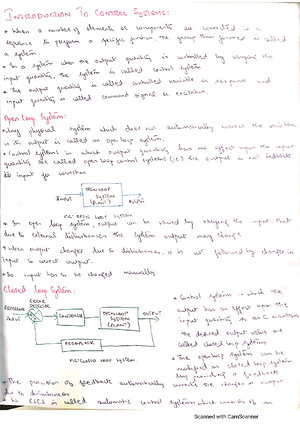 INTRODUCTION TO CONTROL SYSTEMS:
• When a number of elements or components are connected in a
sequence to perform a specific function, the group thus formed is called
a system.
• In a system when the output quantity is controlled by varying the
input quantity, the system is called control system.
• The output quantity is called controlled variable or response and
input quantity is called command signal or excitation.
Open loop System:
• Any physical system which does not automatically correct the variation
in its output is called an open loop system.
• Control systems in which output quantity has no effect upon the input
quantity are called open loop control systems (ie) the output is not
to input for correction
INPUT
OPEN LOOP
SYSTEM
(PLANT)
OUTPUT
FIG: OPEN LOOP SYSTEM
• In open loop system, output can be varied by varying the input but
due to external disturbances the system output may change
• When output changes due to disturbances, it is not followed by changes in
input to correct output.
• So input has to be changed manually.
Closed loop System:
REFERENCE
INPUT
ERROR
DETECTOR
CONTROLLER
OPEN LOOP
SYSTEM
(PLANT)
OUTPUT
FEEDBACK
FIG: CLOSED LOOP SYSTEM
• Control systems in which the
output has an effect upon the
input quantity so as to maintain
the desired output value are
called closed loop systems
• The open loop system can be
modified as closed loop system
by providing a feedback
• The provision of feedback automatically corrects the changes in output
due to disturbances
• So CLCS is called automatic control system which consists of an
Scanned with CamScanner